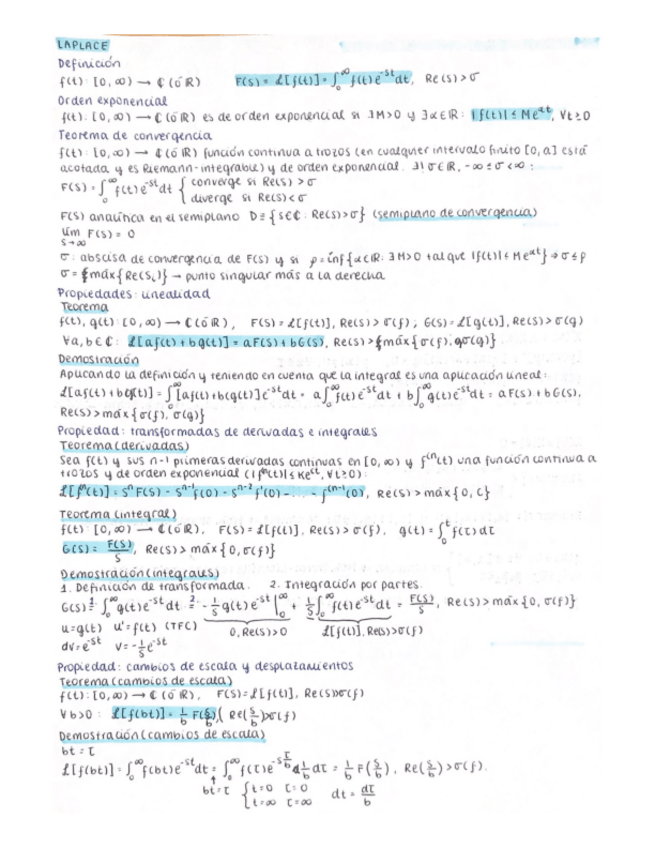 LAPLACE
Definición
f(t): [0,∞) → ℂ (ó ℝ)   F(s) = ℒ[f(t)] = ∫₀^∞ f(t)e^-st dt, Re(s) > σ
Orden exponencial
f(t): [0,∞) → ℂ (ó ℝ) es de orden exponencial si ∃M>0 y ∃α∈ℝ: |f(t)| ≤ Me^αt, ∀t≥0
Teorema de convergencia
f(t): [0,∞) → ℂ (ó ℝ) función continua a trozos (en cualquier intervalo finito [0,a] está
acotada y es Riemann-integrable) y de orden exponencial. ∃! σ∈ℝ, -∞ ≤ σ < ∞ :
F(s) = ∫₀^∞ f(t)e^-st dt { converge si Re(s) > σ
diverge si Re(s) < σ
F(s) analítica en el semiplano D ≡ {s∈ℂ: Re(s) > σ} (semiplano de convergencia)
lím F(s) = 0
s→∞
σ: abscisa de convergencia de F(s) y si ρ = ínf{α∈ℝ: ∃M>0 tal que |f(t)| ≤ Me^αt} ⇒ σ ≤ ρ
σ = máx{Re(sᵢ)} → punto singular más a la derecha
Propiedades: linealidad
Teorema
f(t), g(t): [0,∞) → ℂ (ó ℝ), F(s) = ℒ[f(t)], Re(s) > σ(f); G(s) = ℒ[g(t)], Re(s) > σ(g)
∀a,b∈ℂ: ℒ[af(t)+bg(t)] = aF(s)+bG(s), Re(s) > máx{σ(f), σ(g)}
Demostración
Aplicando la definición y teniendo en cuenta que la integral es una aplicación lineal:
ℒ[af(t)+bg(t)] = ∫₀^∞ [af(t)+b(g(t)]e^-st dt = a∫₀^∞ f(t)e^-st dt + b∫₀^∞ g(t)e^-st dt = aF(s)+bG(s),
Re(s) > máx{σ(f), σ(g)}
Propiedad: transformadas de derivadas e integrales
Teorema (derivadas)
Sea f(t) y sus n-1 primeras derivadas continuas en [0,∞) y f^(n)(t) una función continua a
trozos y de orden exponencial (|f^n(t)| ≤ Ke^ct, ∀t≥0):
ℒ[f^n(t)] = s^n F(s) - s^n-1 f(0) - s^n-2 f'(0) - ... - f^(n-1)(0), Re(s) > máx{0,c}
Teorema (integral)
f(t): [0,∞) → ℂ (ó ℝ), F(s) = ℒ[f(t)], Re(s) > σ(f), g(t) = ∫₀^t f(τ)dτ
G(s) = F(s)/s, Re(s) > máx{0, σ(f)}
Demostración (integrales)
1. Definición de transformada. 2. Integración por partes.
G(s) =¹ ∫₀^∞ g(t)e^-st dt =² -1/s g(t)e^-st |₀^∞ + 1/s ∫₀^∞ f(t)e^-st dt = F(s)/s, Re(s) > máx{0, σ(f)}
u=g(t) u'=f(t) (TFC)   0, Re(s)>0   ℒ[f(t)], Re(s)>σ(f)
dv=e^-st v=-1/s e^-st
Propiedad: cambios de escala y desplazamientos
Teorema (cambios de escala)
f(t): [0,∞) → ℂ (ó ℝ), F(s) = ℒ[f(t)], Re(s)>σ(f)
∀b>0: ℒ[f(bt)] = 1/b F(s/b), (Re(s/b)>σ(f)
Demostración (cambios de escala)
bt = τ
ℒ[f(bt)] = ∫₀^∞ f(bt)e^-st dt = ∫₀^∞ f(τ)e^-s τ/b 1/b dτ = 1/b F(s/b), Re(s/b) > σ(f).
bt=τ { t=0 τ=0   dt = dτ/b
t=∞ τ=∞